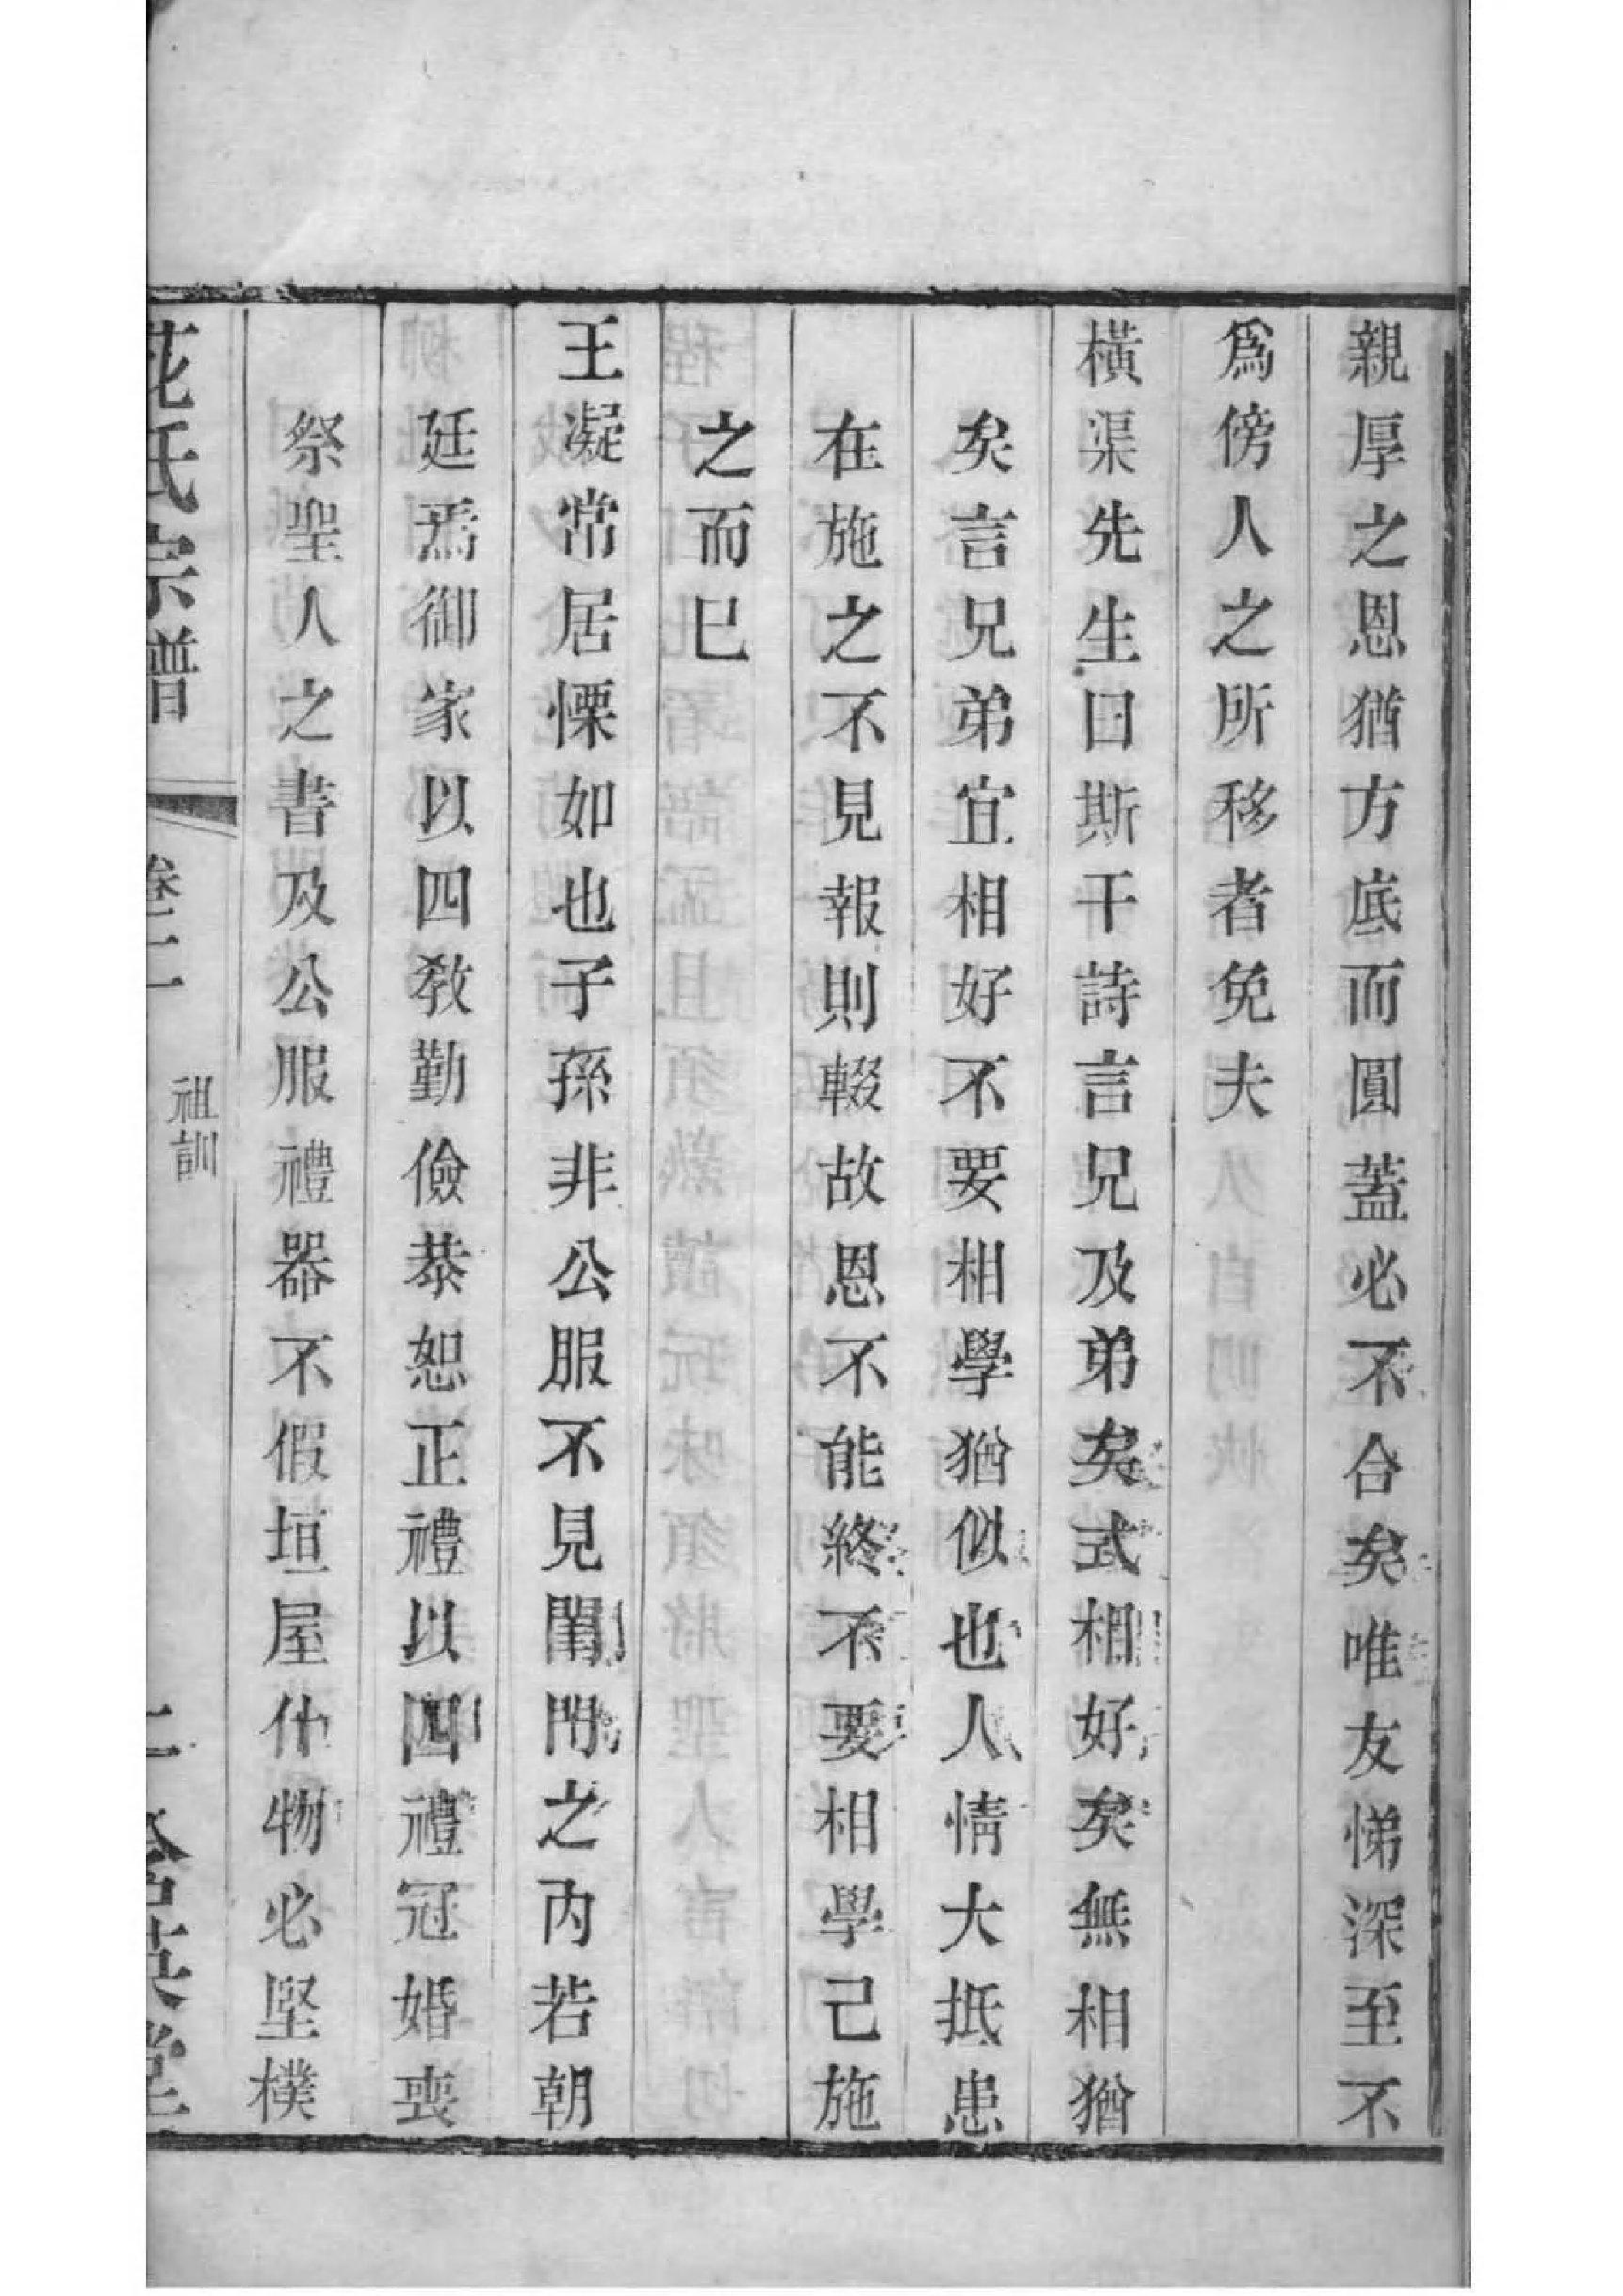 親厚之恩猶方底而圓蓋必不合矣唯友悌深至不
爲傍人之所移者免夫
橫渠先生曰斯干詩言兄及弟矣式相好矣無相猶
矣言兄弟宜相好不要相學猶似也人情大抵患
在施之不見報則輟故恩不能終不要相學己施
之而已
王凝常居慄如也子孫非公服不見閨門之內若朝
廷焉御家以四敎勤儉恭恕正禮以四禮冠婚喪
祭聖人之書及公服禮器不假垣屋什物必堅樸
花氏宗譜
卷二
祖訓
二